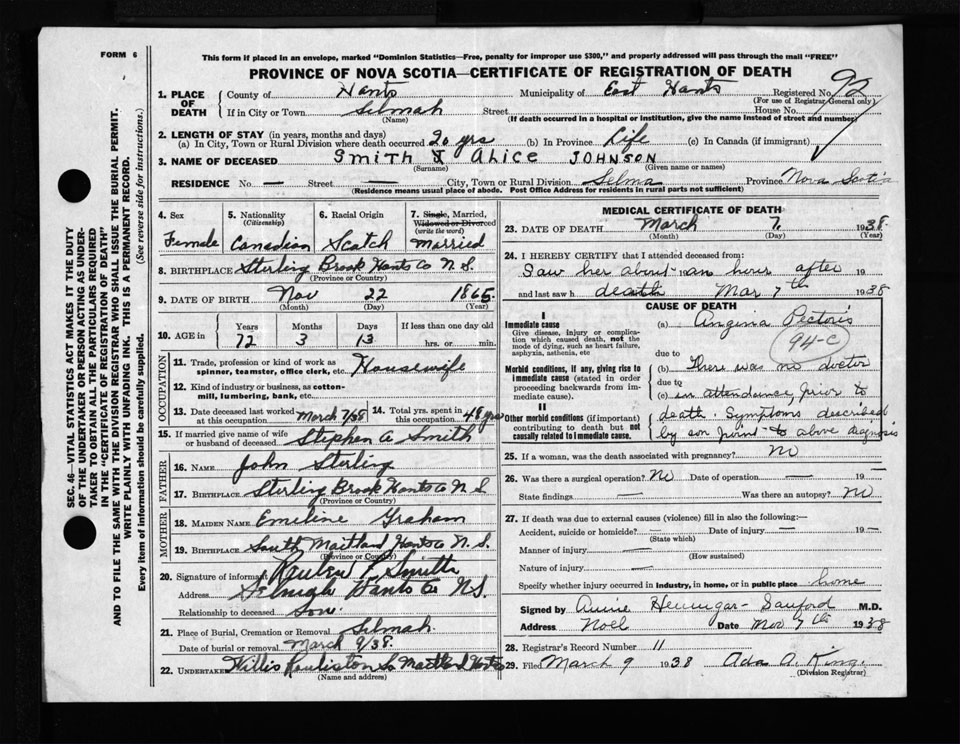 FORM 6
This form if placed in an envelope, marked "Dominion Statistics—Free, penalty for improper use $300," and properly addressed will pass through the mail "FREE"
PROVINCE OF NOVA SCOTIA—CERTIFICATE OF REGISTRATION OF DEATH
SEC. 46—VITAL STATISTICS ACT MAKES IT THE DUTY
OF THE UNDERTAKER OR PERSON ACTING AS UNDER-
TAKER TO OBTAIN ALL THE PARTICULARS REQUIRED
IN THE "CERTIFICATE OF REGISTRATION OF DEATH"
AND TO FILE THE SAME WITH THE DIVISION REGISTRAR WHO SHALL ISSUE THE BURIAL PERMIT.
WRITE PLAINLY WITH UNFADING INK. THIS IS A PERMANENT RECORD.
Every item of information should be carefully supplied. (See reverse side for instructions.)
1. PLACE OF DEATH County of Hants Municipality of East Hants Registered No. 92
(For use of Registrar General only)
If in City or Town Selmah Street House No.
(Name) (If death occurred in a hospital or institution, give the name instead of street and number)
2. LENGTH OF STAY (in years, months and days)
(a) In City, Town or Rural Division where death occurred 20 yrs (b) In Province Life (c) In Canada (if immigrant)
3. NAME OF DECEASED Smith Alice JOHNSON
(Surname) (Given name or names)
RESIDENCE No. — Street — City, Town or Rural Division Selma Province Nova Scotia
(Residence means usual place of abode. Post Office Address for residents in rural parts not sufficient)
4. Sex Female
5. Nationality (Citizenship) Canadian
6. Racial Origin Scotch
7. Single, Married, Widowed or Divorced (write the word) Married
8. BIRTHPLACE Sterling Brook Hants Co N.S.
(Province or Country)
9. DATE OF BIRTH Nov 22 1865
(Month) (Day) (Year)
10. AGE in Years 72 Months 3 Days 13 If less than one day old hrs. or min.
OCCUPATION
11. Trade, profession or kind of work as spinner, teamster, office clerk, etc. Housewife
12. Kind of industry or business, as cotton-mill, lumbering, bank, etc.
13. Date deceased last worked at this occupation March 7/38 14. Total yrs. spent in this occupation 48 yrs
15. If married give name of wife or husband of deceased Stephen A Smith
FATHER
16. NAME John Sterling
17. BIRTHPLACE Sterling Brook Hants Co N S
(Province or Country)
MOTHER
18. MAIDEN NAME Emeline Graham
19. BIRTHPLACE South Maitland Hants Co N.S.
(Province or Country)
20. Signature of informant Smith
Address Selmah Hants Co N.S.
Relationship to deceased Son.
21. Place of Burial, Cremation or Removal Selmah.
Date of burial or removal March 9/38.
22. UNDERTAKER Willis So Maitland Hants
(Name and address)
MEDICAL CERTIFICATE OF DEATH
23. DATE OF DEATH March 7, 1938.
(Month) (Day) (Year)
24. I HEREBY CERTIFY that I attended deceased from:
Saw her about an hour after 19
and last saw h death Mar 7th 1938
CAUSE OF DEATH
I
Immediate cause
Give disease, injury or complication which caused death, not the mode of dying, such as heart failure, asphyxia, asthenia, etc
(a) Angina Pectoris
94-C
due to
Morbid conditions, if any, giving rise to immediate cause (stated in order proceeding backwards from immediate cause).
(b) There was no doctor
due to
(c) in attendance prior to
II
Other morbid conditions (if important) contributing to death but not causally related to immediate cause.
death. Symptoms described
by son point to above diagnosis
25. If a woman, was the death associated with pregnancy? No
26. Was there a surgical operation? No Date of operation — 19 —
State findings — Was there an autopsy? No
27. If death was due to external causes (violence) fill in also the following:—
Accident, suicide or homicide? — Date of injury — 19 —
(State which)
Manner of injury —
(How sustained)
Nature of injury —
Specify whether injury occurred in industry, in home, or in public place home
Signed by Annie Hennigar-Sanford M.D.
Address Noel Date Mar 7th 1938
28. Registrar's Record Number 11
29. Filed March 9 1938 Ada A. King.
(Division Registrar)